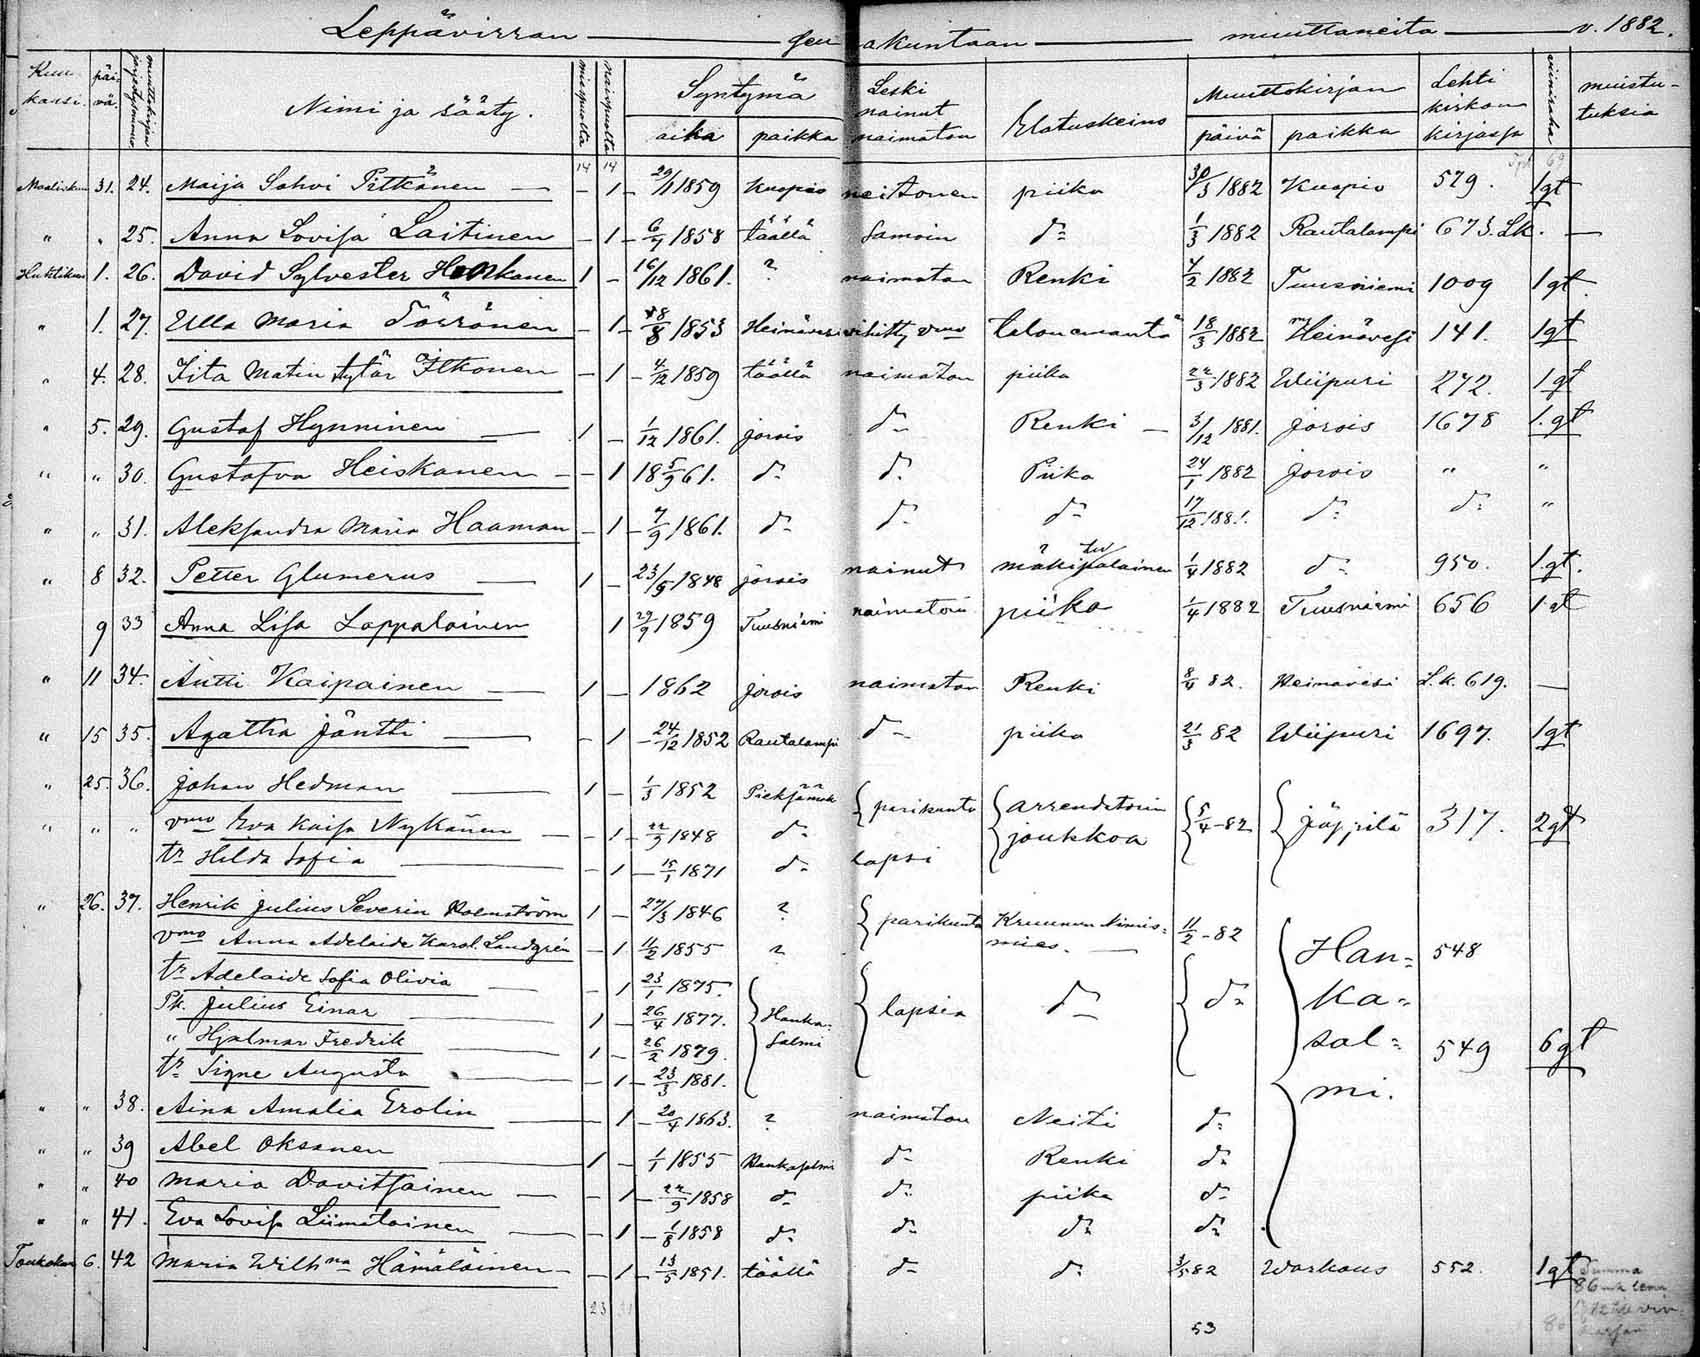 Leppävirran seurakuntaan muuttaneita v. 1882.
Kuukausi. päivä. muuttokirjan järjestysnumero Nimi ja sääty. miespuolta naispuolta Syntymä aika paikka Leski nainut naimaton Elatuskeino Muuttokirjan päivä paikka Lehti kirkon kirjassa viiniraha muistutuksia
14 14
Maaliskuu 31. 24. Maija Sohvi Pitkänen — 1 29/1 1859 Kuopio neitonen piika 30/3 1882 Kuopio 579. 1gt
" " 25. Anna Lovisa Laitinen — 1 6/7 1858 täällä samoin do 1/3 1882 Rautalampi 673. Lk. —
Huhtikuu 1. 26. David Sylvester Honkanen 1 — 16/12 1861. ? naimaton Renki 4/2 1882 Tuusniemi 1009 1gt.
" 1. 27. Ulla Maria Törrönen — 1 18/8 1853 Heinävesi vihitty vmo talonemäntä 18/3 1882 Heinävesi 141. 1gt
" 4. 28. Iita Matin tytär Itkonen — 1 4/12 1859 täällä naimaton piika 22/3 1882 Wiipuri 272. 1gt
" 5. 29. Gustaf Hynninen — 1 — 1/12 1861. Jorois do Renki — 3/12 1881. Jorois 1678 1.gt
" " 30. Gustafva Heiskanen — 1 18 5/9 61. do do Piika 24/1 1882 Jorois " "
" " 31. Aleksandra Maria Haaman — 1 7/9 1861. do do do 17/12 1881. do do "
" 8 32. Petter Glumerus — 1 — 23/5 1848 Jorois nainut mäkitupalainen 1/4 1882 do 950. 1.gt.
9 33 Anna Lisa Lappalainen 1 29/9 1859 Tuusniemi naimatoin piika 1/4 1882 Tuusniemi 656 1 gt
" 11 34. Antti Kaipainen — 1 — 1862 Jorois naimaton Renki 8/4 82. Heinävesi L.k. 619. —
" 15 35. Agatha Jäntti — 1 24/12 1852 Rautalampi do piika 21/3 82 Wiipuri 1697. 1gt
" 25. 36. Johan Hedman — 1 — 1/3 1852 Pieksämäk parikunta arrendatorin joukkoa 5/4-82 Jäppilä 317. 2gt
" " " vmo Eva Kaisa Nykänen — 1 22/9 1848 do
tr Hilda Sofia — 1 15/1 1871 do lapsi
" 26. 37. Henrik Julius Severin Holmström 1 — 27/3 1846 ? parikunta Kruunun Nimismies. 11/2-82 Hankasalmi. 548
vmo Anna Adelaide Karol. Lundgrén — 1 11/2 1855 ?
tr Adelaide Sofia Olivia — 1 23/1 1875. Hankasalmi lapsia do do
Pk. Julius Einar — 1 — 26/4 1877.
" Hjalmar Fredrik — 1 — 26/2 1879. 549 6gt
tr Signe Augusta — 1 23/3 1881.
" " 38. Aina Amalia Erolin — 1 20/4 1863. ? naimaton Neiti do
" " 39 Abel Oksanen — 1 — 1/1 1855 Hankasalmi do Renki do
" " 40 Maria Davitsainen — 1 22/9 1858 do do piika do
" " 41. Eva Lovisa Liimatainen — 1 1/8 1858 do do do do
Toukokuu 6. 42 Maria Wilhna Hämäläinen — 1 13/5 1851. täällä do do 3/5 82 Warkaus 552. 1gt
Summa
23
53